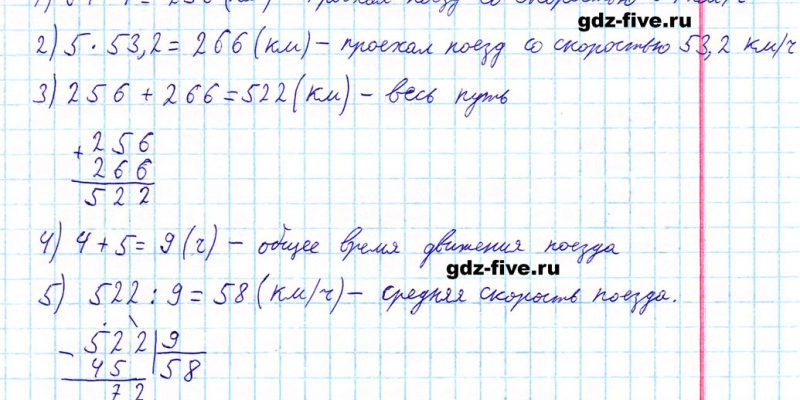 gdz-five.ru
2) 5 · 53,2 = 266 (км) – проехал поезд со скоростью 53,2 км/ч
3) 256 + 266 = 522 (км) – весь путь
+ 256
266
522
4) 4 + 5 = 9 (ч) – общее время движения поезда
gdz-five.ru
5) 522 : 9 = 58 (км/ч) – средняя скорость поезда.
– 522 | 9
45 | 58
72